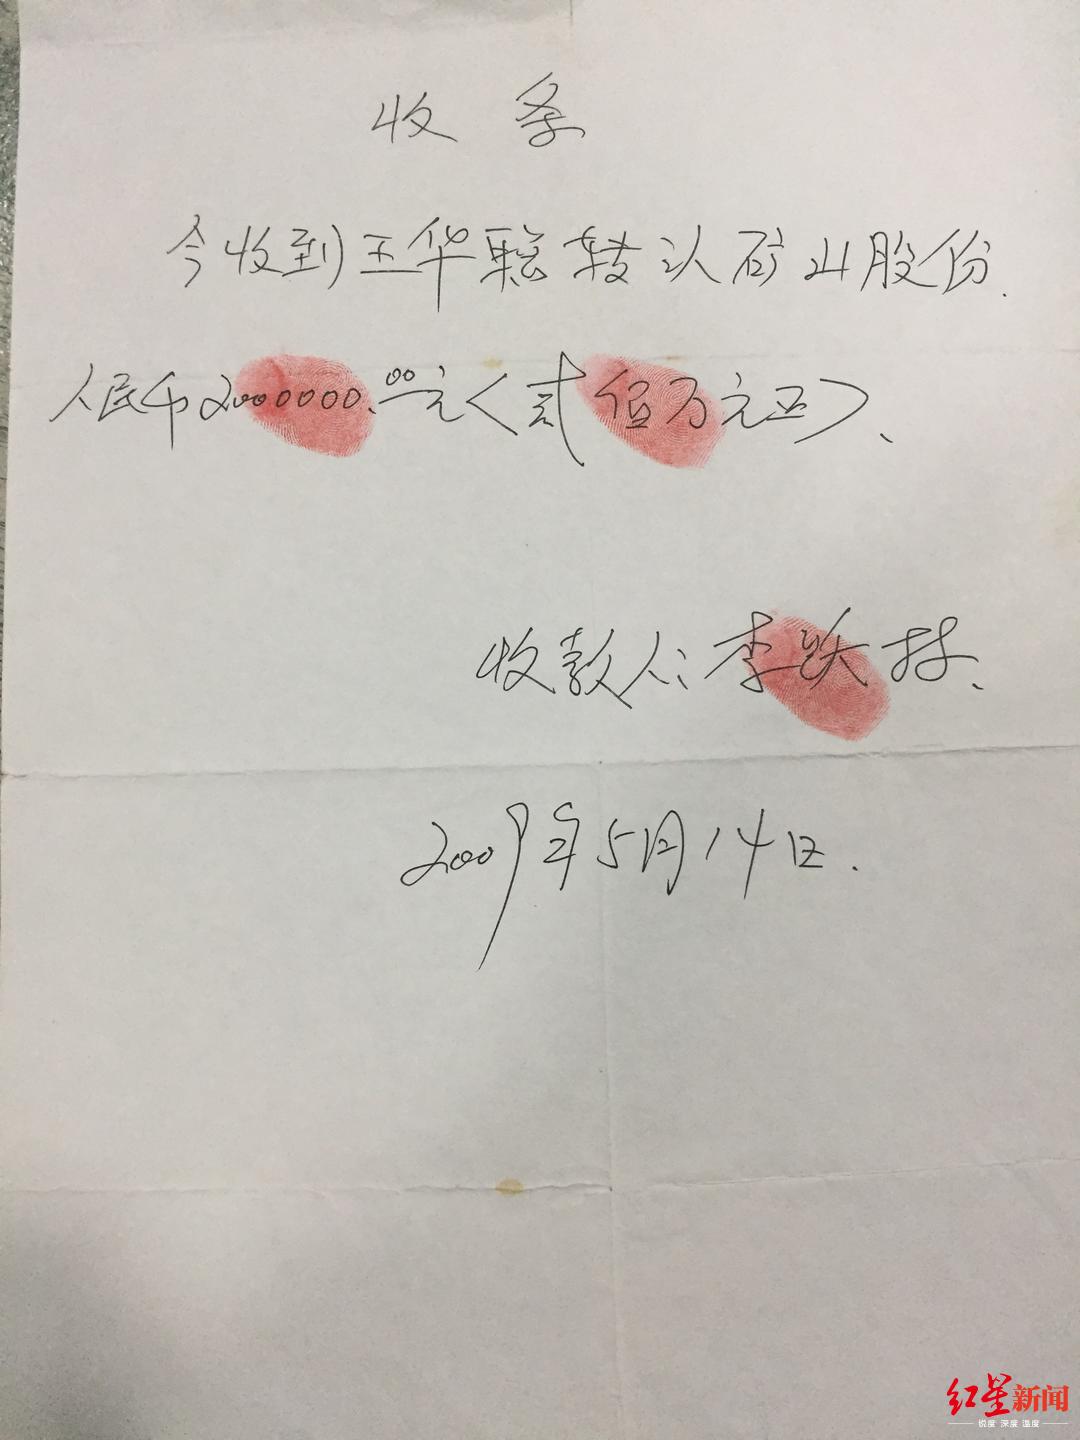 收条
今收到王华聪转认矿山股份.
人民币2000000.00元(贰佰万元正)、
收款人:李跃林、
2009年5月14日.
红星新闻
锐度 深度 温度